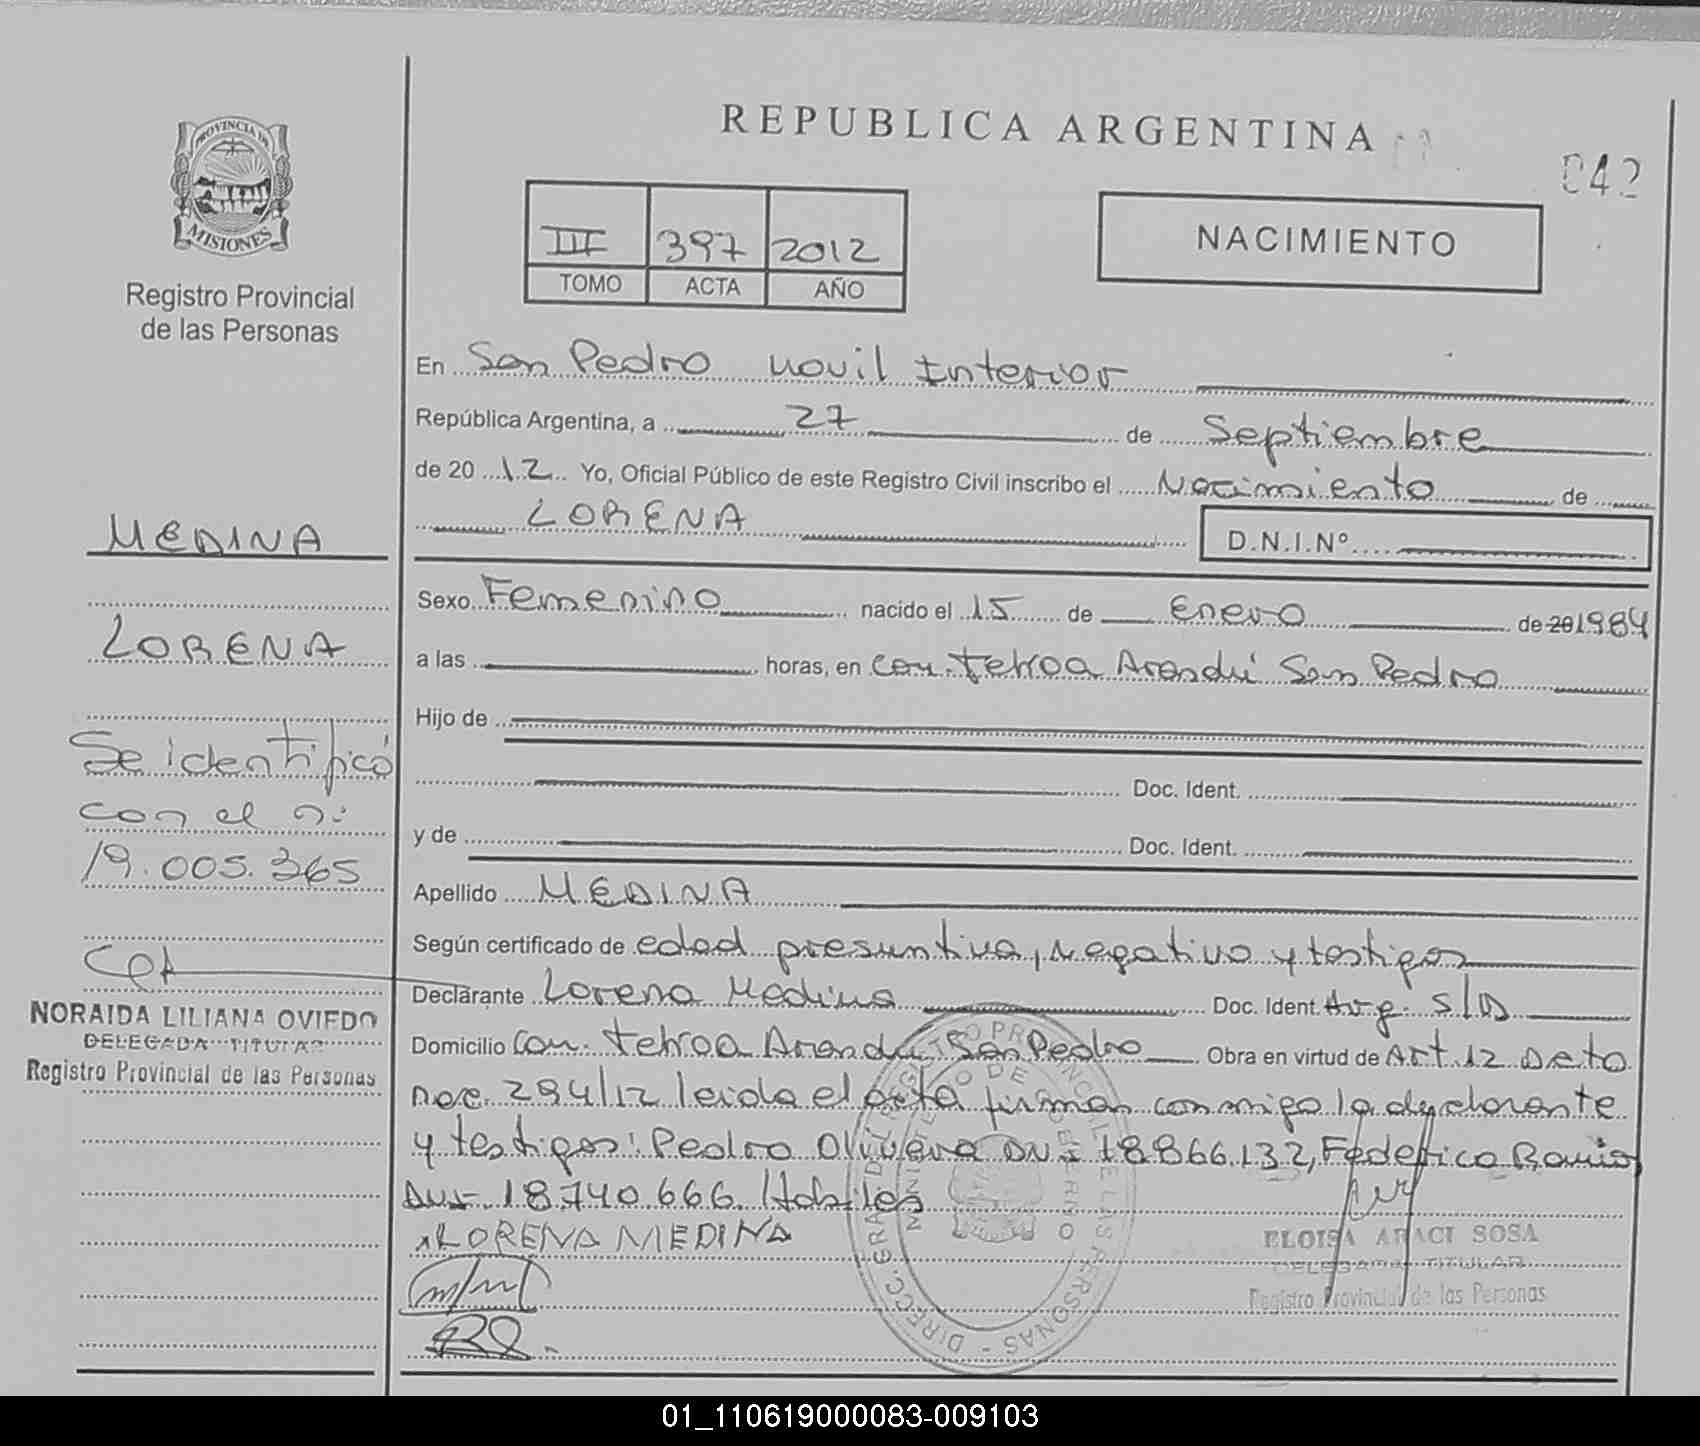 REPUBLICA ARGENTINA
042
PROVINCIA DE
MISIONES
Registro Provincial
de las Personas
III 397 2012
TOMO ACTA AÑO
NACIMIENTO
En San Pedro Movil Interior
República Argentina, a 27 de Septiembre
de 2012 Yo, Oficial Público de este Registro Civil inscribo el Nacimiento de
LORENA D.N.I.Nº
Sexo Femenino nacido el 15 de Enero de 20 1984
a las horas, en Com. Tekoa Arandú San Pedro
Hijo de
Doc. Ident.
y de Doc. Ident.
Apellido MEDINA
Según certificado de edad presuntiva, negativo y testigos
Declarante Lorena Medina Doc. Ident. Arg. S/D
Domicilio Com. Tekoa Arandú San Pedro Obra en virtud de Art. 12 Dcto
Nac. 294/12 leida el acta firman conmigo la declarante
y testigos: Pedro Olivera DNI 18.866.132, Federico Ramis
DNI 18.740.666 Habiles
LORENA MEDINA
ELOISA ARACI SOSA
DELEGADA TITULAR
Registro Provincial de las Personas
MEDINA
LORENA
Se identificó
con el n:
19.005.365
NORAIDA LILIANA OVIEDO
DELEGADA TITULAR
Registro Provincial de las Personas
01_110619000083-009103